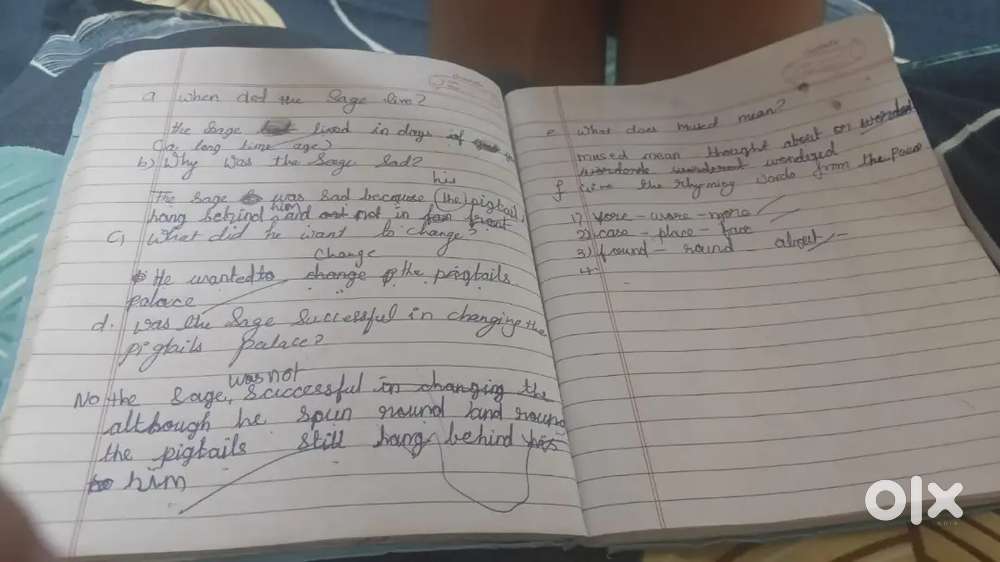 a when did the Sage live?
the Sage lived in days of
(a long time age)
b) Why was the Sage Sad?
his
The Sage was sad because (the) pigtail
hang behind him and not in front
C) What did he want to change?
change
He wanted to change the pigtails
palace
d. was the Sage Successful in changing the
pigtails palace?
was not
No the Sage, Successful in changing the
although he spun round and round
the pigtails still hang behind his
him
e what does mused mean?
mused mean thought about or
wondered
f Give the rhyming words from the Poem
1) yore - wore - more
2) case - place - face
3) found - round - about -
4.
olx